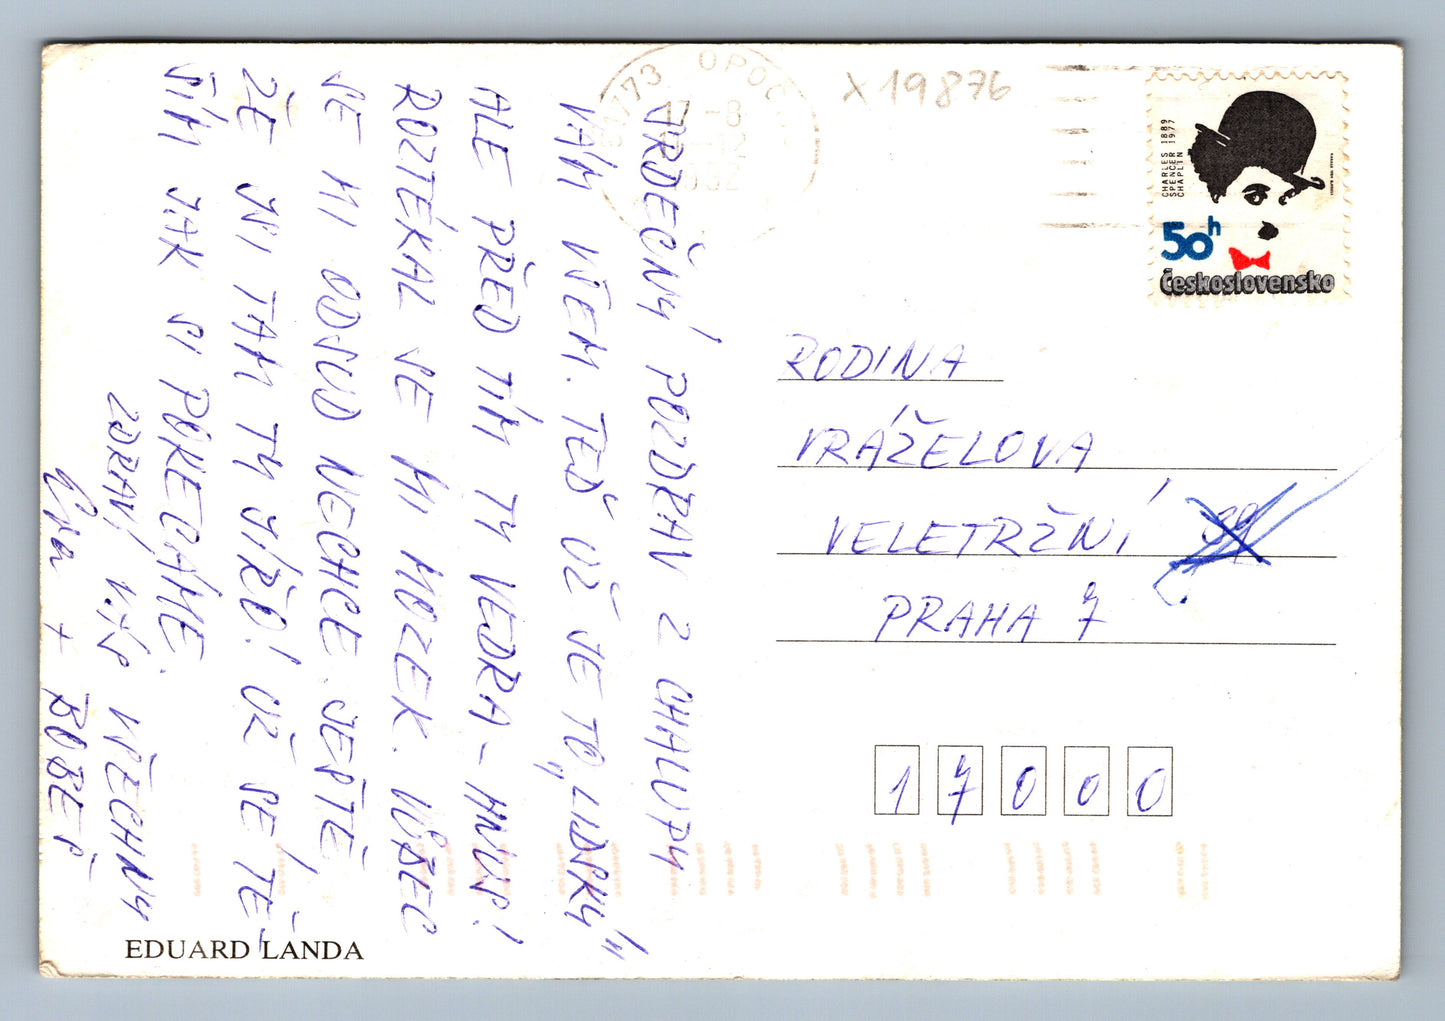 SRDEČNÝ POZDRAV Z CHALUPY
VÁM VŠEM. TEĎ UŽ JE TO „LIDSKÝ"
ALE PŘED TÍM TY VEDRA - HNUS!
ROZTÉKAL SE MI MOZEK. VŮBEC
SE MI ODSUD NECHCE. JEŠTĚ
ŽE JSI TAM TY JÍŘO! UŽ SE TĚ-
ŠÍM JAK SI POKECÁME.
ZDRAVÍ VÁS VŠECHNY
Eva + BOBEŠ
EDUARD LANDA
51773 OPOČ
17 -8
1992
x 19876
CHARLES 1889
SPENCER 1977
CHAPLIN
50h
Československo
RODINA
VRÁŽELOVA
VELETRŽNÍ 39
PRAHA 7
17000